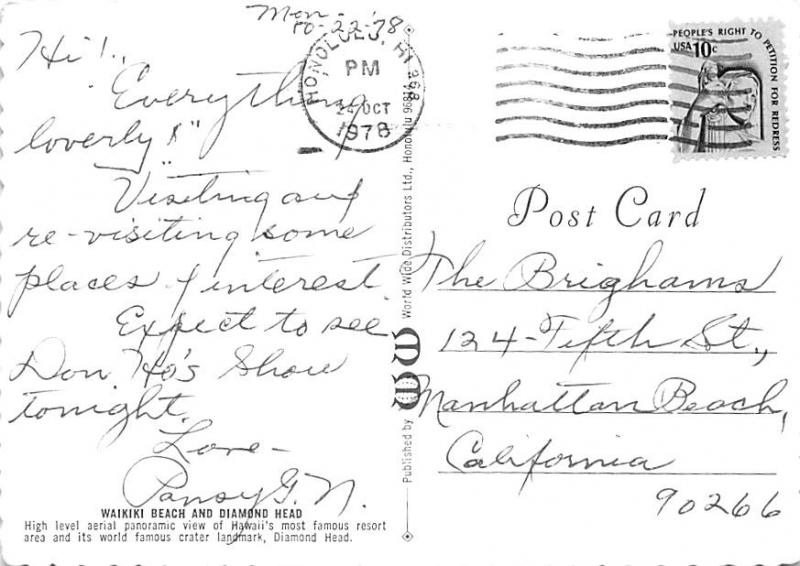 Mon -
10-22-'78
Hi!,
Everything
loverly!"
Visiting and
re-visiting some
places of interest
Expect to see
Don Ho's Show
tonight.
Love -
Pansy G. N.
WAIKIKI BEACH AND DIAMOND HEAD
High level aerial panoramic view of Hawaii's most famous resort
area and its world famous crater landmark, Diamond Head.
HONOLULU, HI 968
PM
24 OCT
1978
Published by WW World Wide Distributors Ltd., Honolulu
PEOPLE'S RIGHT TO PETITION FOR REDRESS
USA 10c
Post Card
The Brighams
124 - Fifth St.,
Manhattan Beach,
California
90266